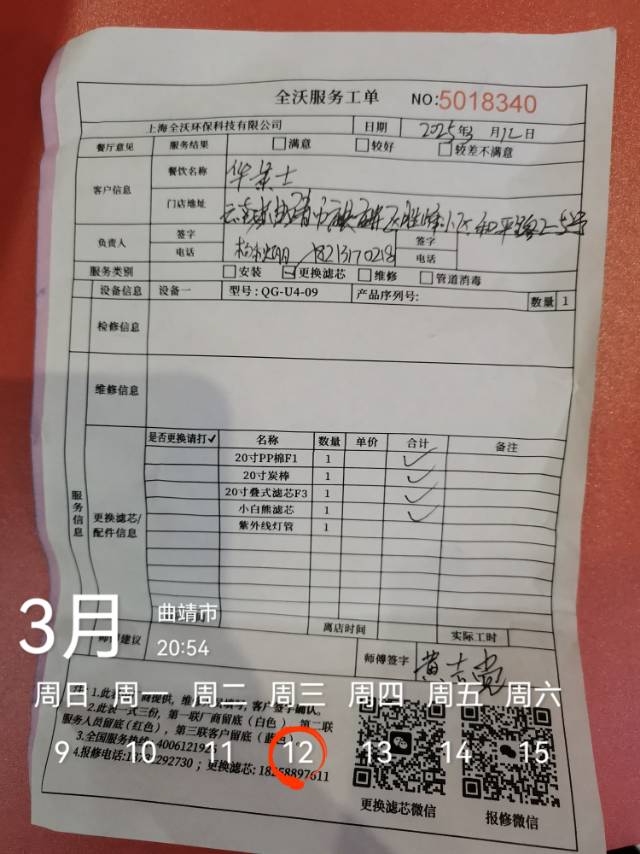 全沃服务工单 NO:5018340
上海全沃环保科技有限公司 日期 2025年3月12日
餐厅意见 服务结果 满意 较好 较差不满意
客户信息 餐饮名称 华莱士
门店地址
负责人 签字 签字
电话 电话
服务类别 安装 更换滤芯 维修 管道消毒
设备信息 设备一 型号:QG-U4-09 产品序列号: 数量 1
检修信息
维修信息
服务信息
更换滤芯/配件信息
是否更换请打✓ 名称 数量 单价 合计 备注
20寸PP棉F1 1 ✓
20寸炭棒 1 ✓
20寸叠式滤芯F3 1 ✓
小白熊滤芯 1 ✓
紫外线灯管 1
离店时间 实际工时
建议 师傅签字
3月 曲靖市
20:54
周日 周一 周二 周三 周四 周五 周六
9 10 11 12 13 14 15
2.此表一式三份,第一联厂商留底(白色),第二联
服务人员留底(红色),第三联客户留底
3.全国服务热线
4.报修电话: 更换滤芯:
更换滤芯微信 报修微信